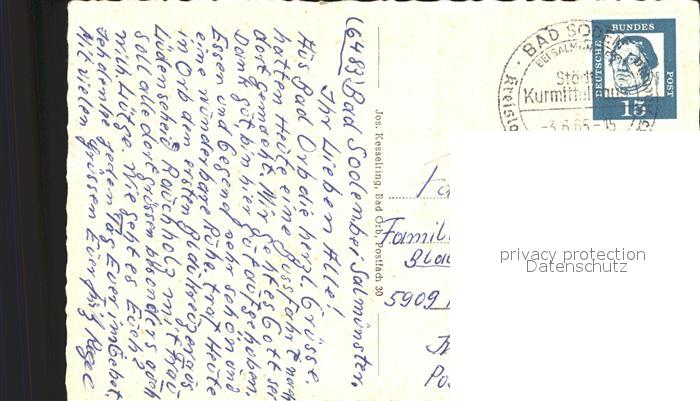 (6483) Bad Soden bei Salmünster,
Ihr Lieben Alle!
Aus Bad Orb die herzl. Grüsse,
hatten Heute eine Bussfahrt nach
dort gemacht. Mir geht es Gott sei
Dank gut bin hier gut aufgehoben.
Essen und Gegend sehr schön und
eine wunderbare Ruhe. traf Heute
in Orb den ersten Blaukreuzer aus
Lüdenscheid Rauchholz mit Frau
soll alle dort grüssen besonders auch
mich Lütge. Wie geht es Euch?
gedenke jeden Tag Eurer im Gebet.
Mit vielen Grüssen Euer
Jos. Kesselring, Bad Orb, Postfach 30
BAD SODEN
BEI SALMÜNSTER
Städt
Kurmittelhaus
-3.6.65-15
DEUTSCHE BUNDESPOST
15
Famili
Blau
5909
Po
privacy protection
Datenschutz